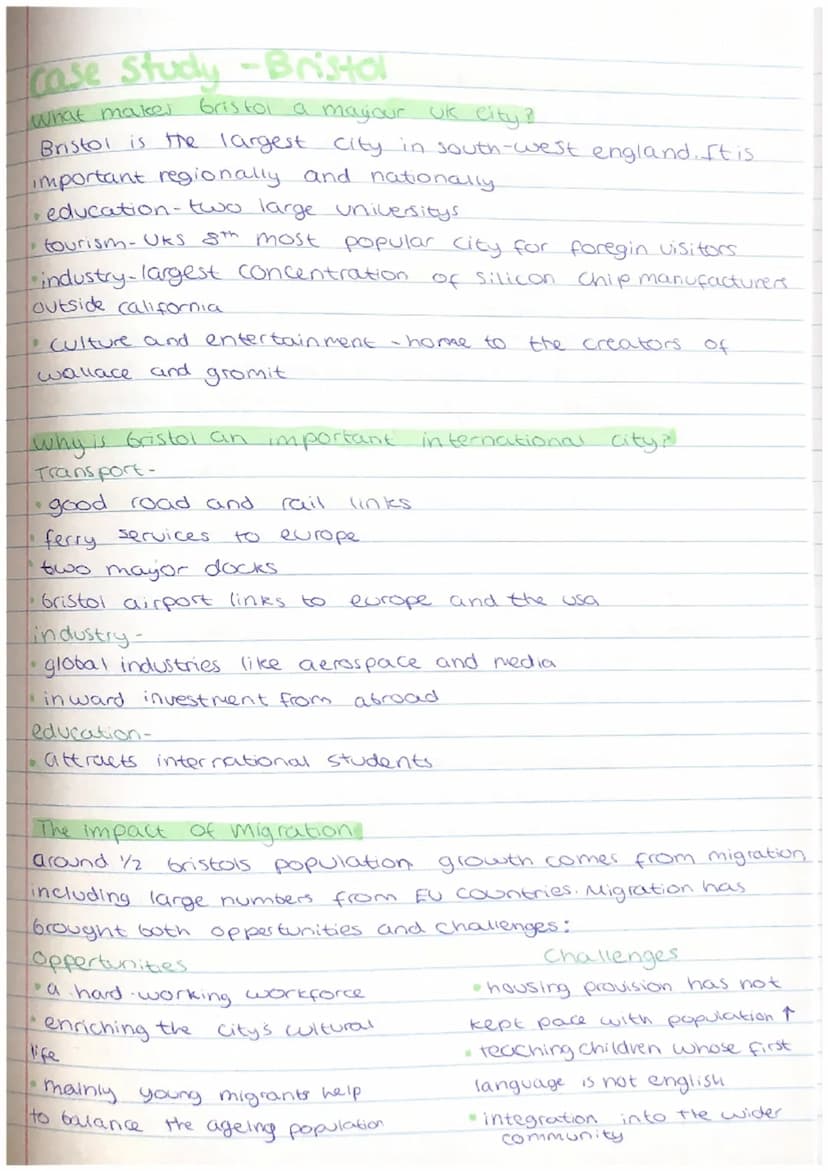 Case Study - Bristol
What makes bristol a mayour UK city?
Bristol is the largest city in south-west england. It is
important regionally and nationally
• education - two large universitys
• tourism - UKs 8th most popular city for foregin visitors
• industry - largest concentration of silicon chip manufacturers
outside california
• culture and entertainment - home to the creators of
wallace and gromit
Why is bristol an important international city?
Transport -
• good road and rail links
• ferry services to europe
• two mayor docks
• bristol airport links to europe and the usa
industry -
• global industries like aerospace and media
• inward investment from abroad
education -
• attracts international students
The impact of Migration
around 1/2 bristols population growth comes from migration,
including large numbers from EU countries. Migration has
brought both oppertunities and challenges:
Oppertunities
• a hard-working workforce
• enriching the city's cultural
life
• mainly young migrants help
to balance the ageing population
Challenges
• housing provision has not
kept pace with population ↑
• teaching children whose first
language is not english
• integration into the wider
community